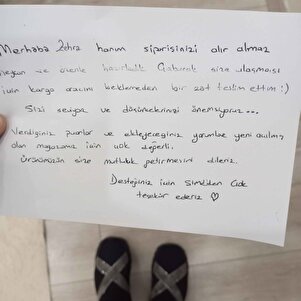 Merhaba Zehra hanım siparişinizi alır almaz
heyecan ve özenle hazırladık Çabucak size ulaşması
için kargo aracını beklemeden bir zat teslim ettim :)
Sizi seviyor ve düşüncelerinizi önemsiyoruz...
Verdiğiniz puanlar ve ekleyeceğiniz yorumlar yeni açılmış
olan mağazamız için çok değerli.
Ürünümüzün size mutluluk getirmesini dileriz.
Desteğiniz için Şimdiden Çok
teşekür ederiz ♡